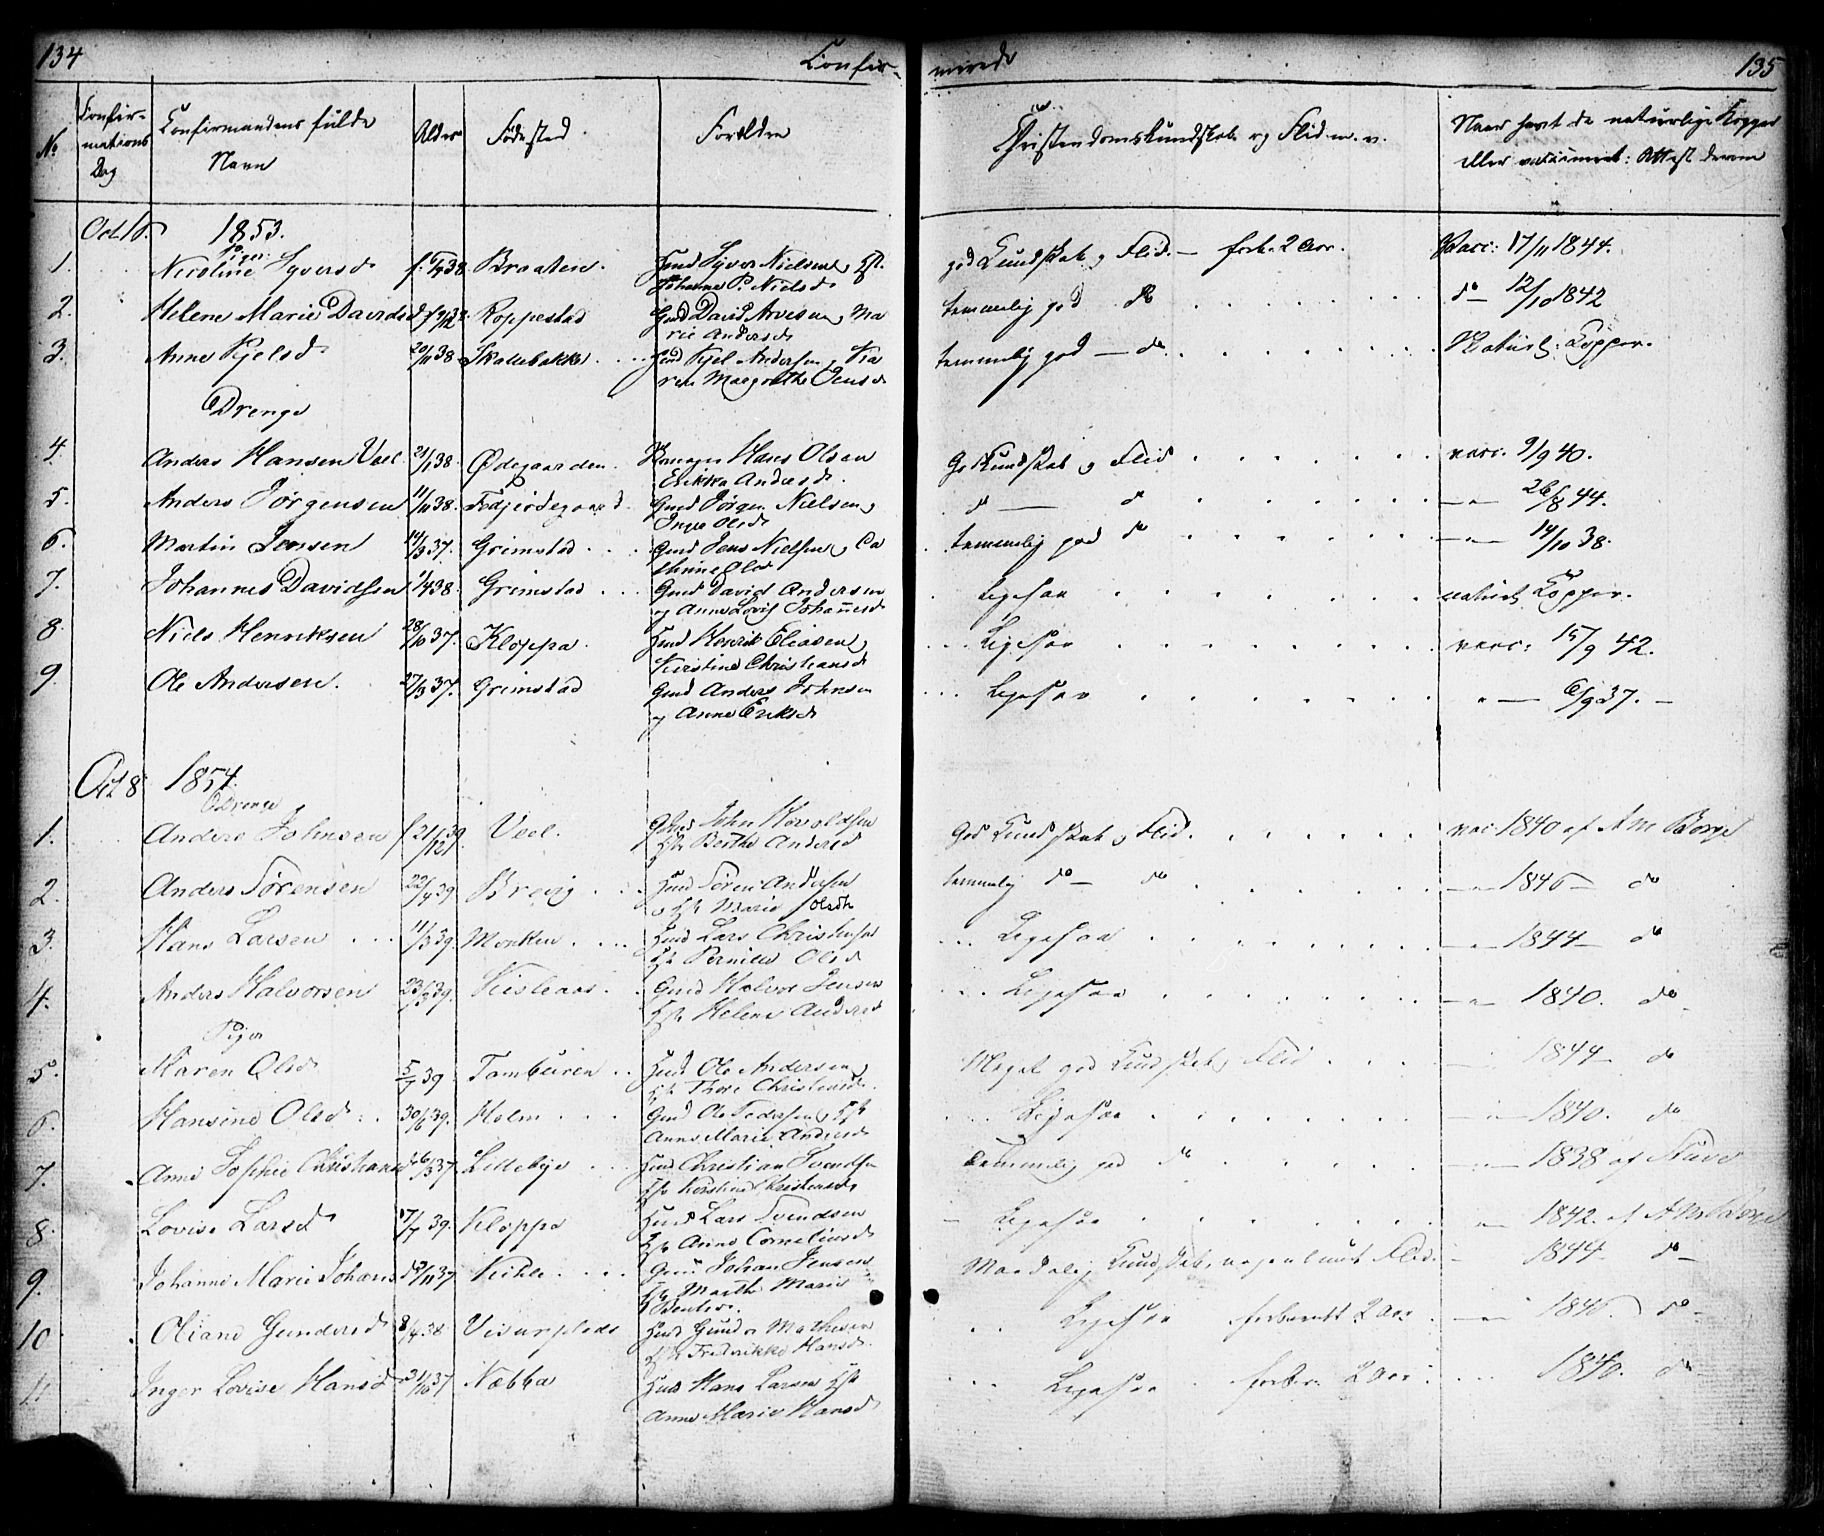 134 Confir-
merede 135
No Confirmations Dag Confirmandens fulde Navn Alder Fødested Forældre Christendomskundskab og Flid m. v. Naar havt de naturlige Kopper eller vaccineret: Attest derom
Oct. 16. 1853.
Piger
1. Nicoline Syversd f. 38 Braaten. Huusmd Syver Nielsen, Hst. god Kundskab og Flid. — forb. 2 Aar. Vacc: 17/11 1844.
Johanne P. Nielsd
2. Helene Marie Davidsd Roppestad Gmd David Arvesen, Ma temmelig god do do — 12/10 1842
rie Andersd
3. Anne Kjelsd 20/11 38 Skallebakke Kjel Andersen, Ka temmelig god — do Naturl: Kopper.
ren Margrethe Jensd
Drenge
4. Anders Hansen Veel 21/1 38. Ødegaarden. Hans Olsen God Kundskab og Flid vacc: 9/9 40.
Erikka Andersd.
5. Anders Jørgensen 11/11 38. Fedjordegaard Gmd Jørgen Nielsen, d — d — " — 26/8 44.
Inge Olsd
6. Martin Jensen 14/9 37. Grimstad Gmd Jens Nielsen, Ca temmelig god do — " — 14/10 38.
thrine Olsd
7. Johannes Davidsen 1/4 38 Grimstad Gmd David Andersen Ligesaa naturl. Kopper.
og Anne Lovise Johannesd
8. Niels Henriksen 28/10 37. Kloppa. Huusmd Henrik Eliasen, Ligesaa vacc: 15/9 42.
Kirstine Christiansd
9. Ole Andersen. 27/3 37. Grimstad Gmd Anders Johnsen Ligesaa " — 6/9 37. —
og Anne Eriksd
Oct 8 1854.
Drenge
1. Anders Johnsen f 21/12 39. Veel. Gmd John Haraldsen God Kundskab og Flid. vac: 1840 af A M Borge
Hst Berthe Andersd
2. Anders Sørensen 22/4 39 Brevig Huusmd Søren Andersen temmelig do — do — " — 1846 — do
o Hst Marie Olsdtr
3. Hans Larsen 11/3 39. Monken Huusmd Lars Christensen Ligesaa — " — 1844 — do
Hst Pernille Olsd
4. Anders Halvorsen 23/3 39. Gmd Halvor Jensen Ligesaa — " — 1840. do
Hst Helene Andersd
Piger
5. Maren Olsd 5/7 39 Tamburen Huusmd Ole Andersen, Meget god Kundskab og Flid 1844 — do
Hst Thore Christiansd.
6. Hansine Olsd 30/6 39. Holm Gmd Ole Pedersen, Hst Ligesaa 1840. do
Anne Marie Andersd
7. Anne Sophie Christiansd 37 Lillebye Huusmd Christian Svendsen Temmelig god do 1838 af Stave
Hst Kirstine Christensd.
8. Lovise Larsd 17/7 39. Kloppa Huusmd Lars Svendsen Ligesaa — " — 1842. af A M Borge
Hst Anne Corneliusd
9. Johanne Marie Johansd 37 Kihle Gmd Johan Jensen Maadelig Kundskab, Flid. 1844 — do —
Hst Marthe Marie
Bentsd.
10 Oliane Gundersd 8/4 38 Huusmd Gunder Mathisen Ligesaa forberedt 2 Aar — " — 1846. do —
Hst Fredrikke Hansd.
11 Inger Lovise Hansd 21/10 37 Næbba Huusmd Hans Larsen Hst Ligesaa forber. 2 Aar 1840. do —
Anne Marie Hansd